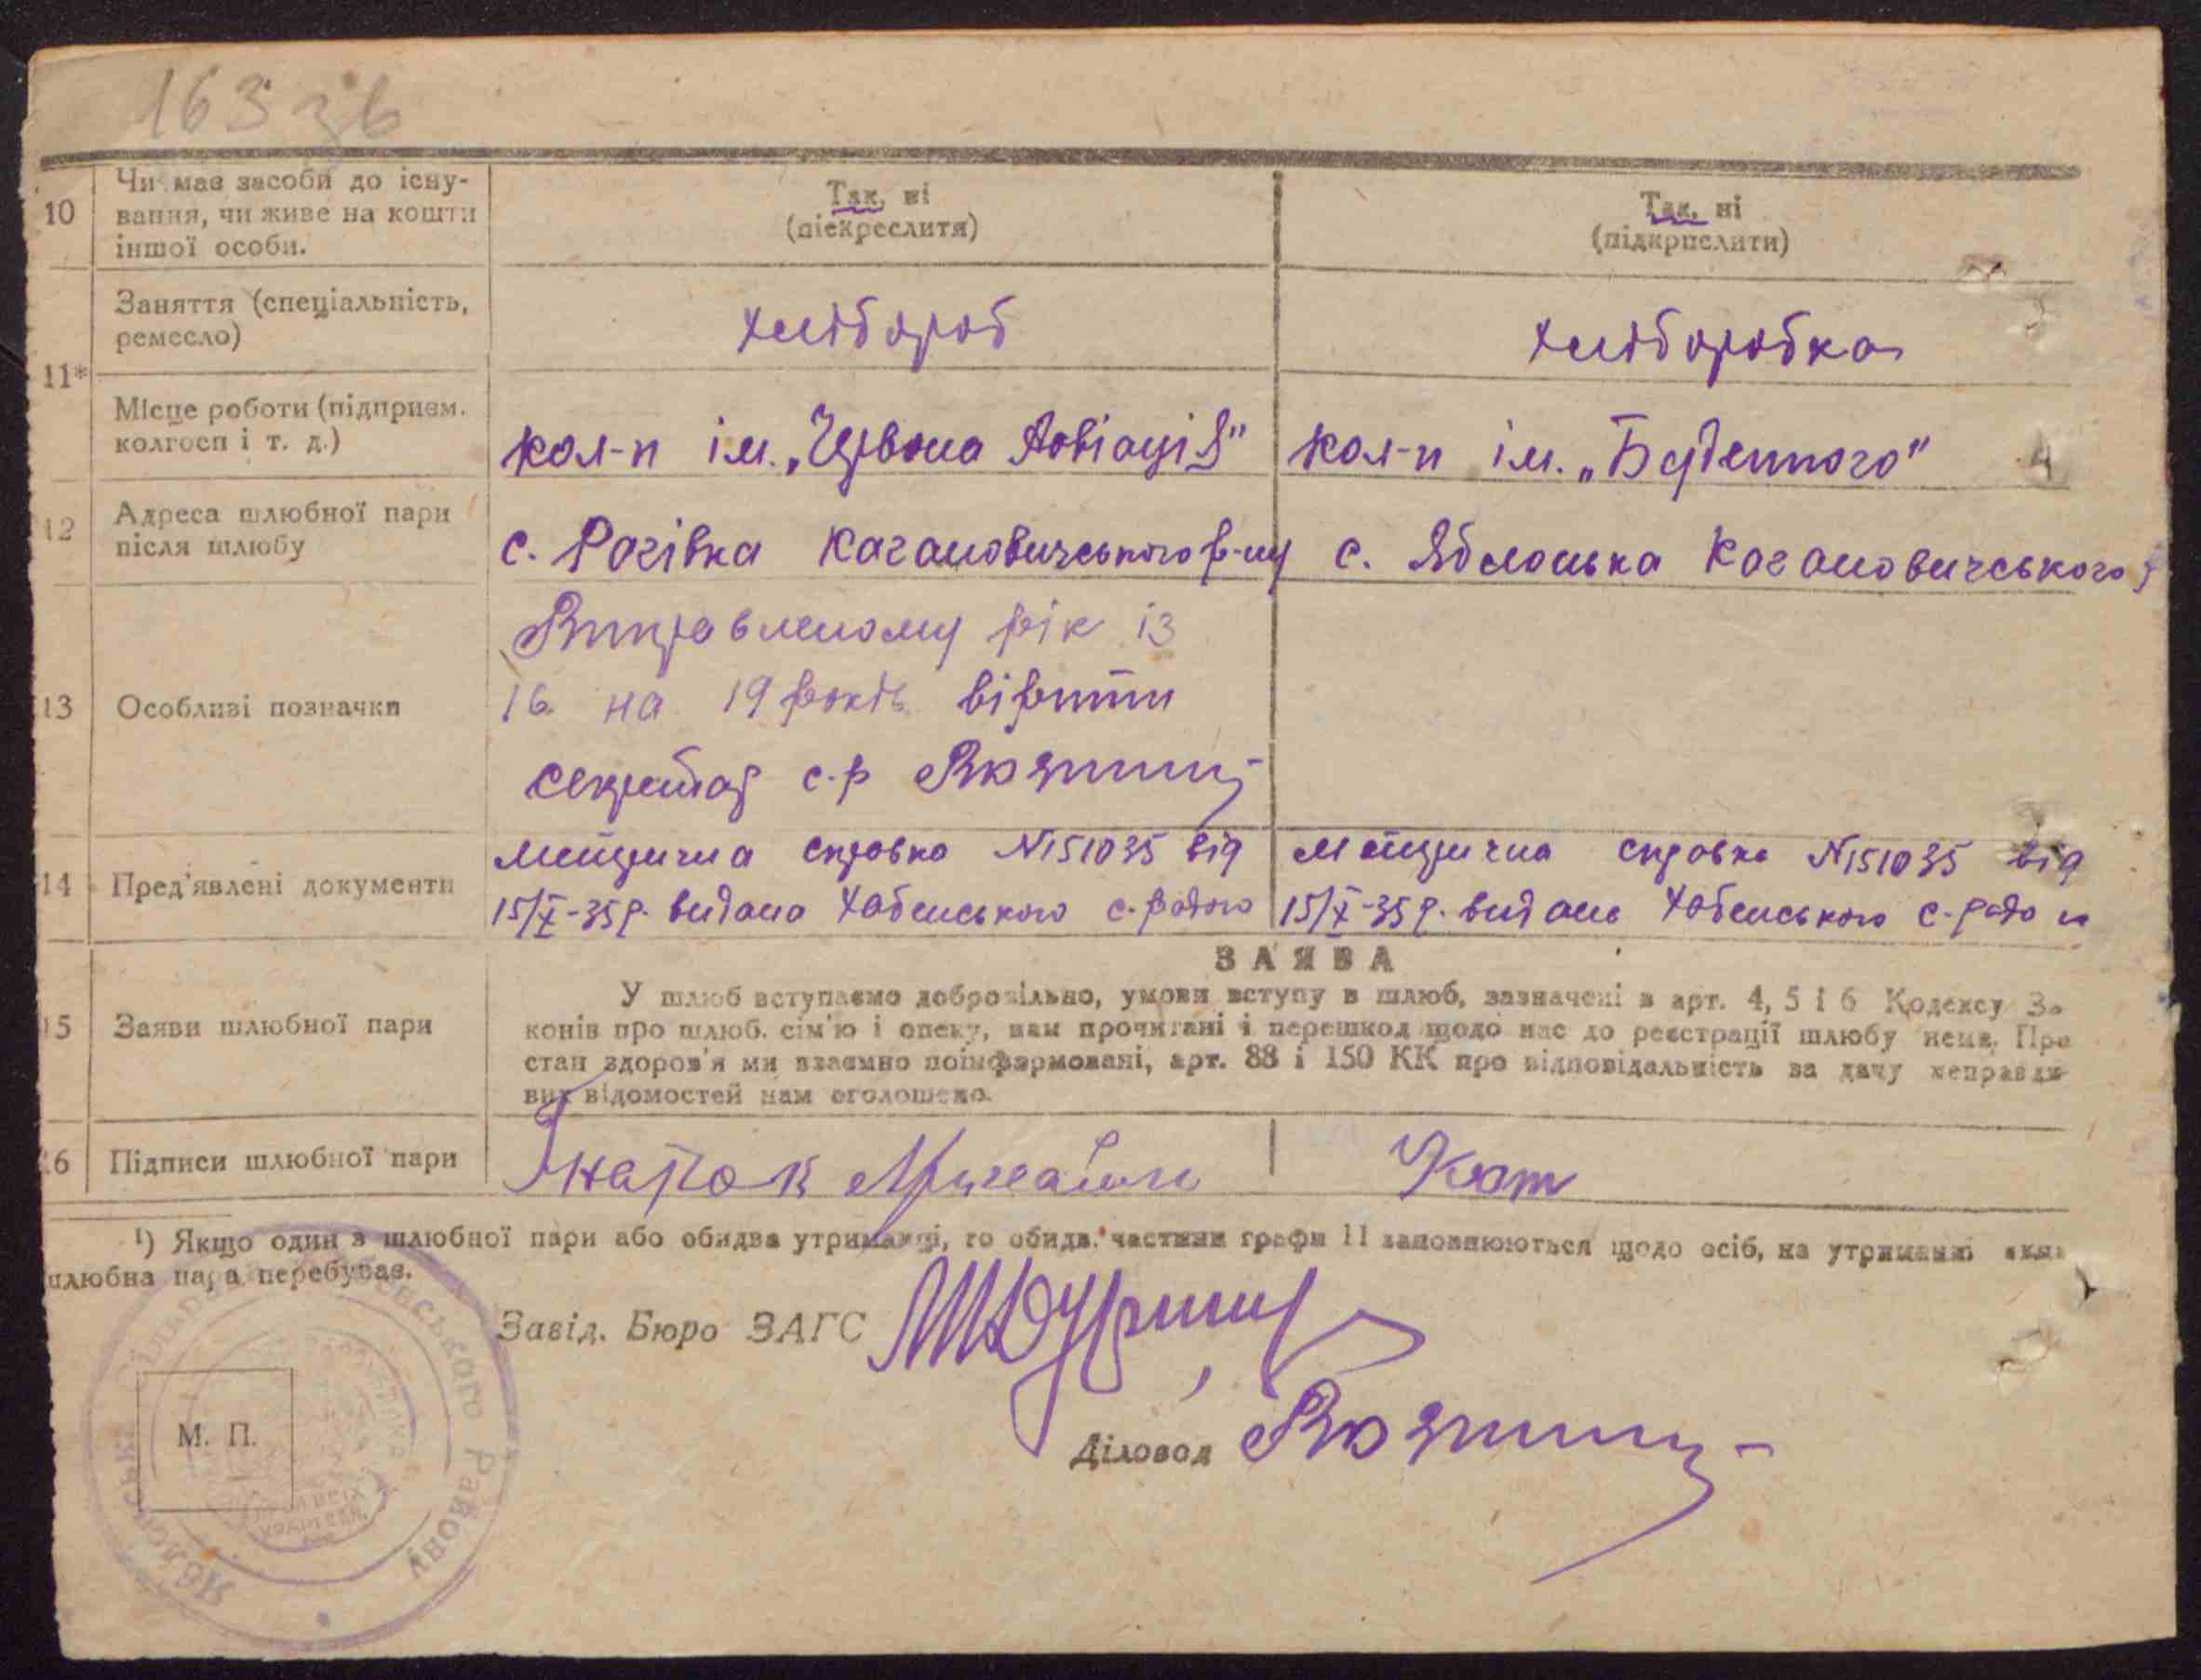 163 зв
10
Чи має засоби до існу-
вання, чи живе на кошти
іншої особи.
Так, ні
(піекреслитя)
Так, ні
(підкрпслити)
11*
Заняття (спеціальність,
ремесло)
хлібороб
хліборобка
Місце роботи (підприєм.
колгосп і т. д.)
кол-п ім. „Червона Авіація"
кол-п ім. „Буденного"
12
Адреса шлюбної пари
після шлюбу
с. Рагівка Кагановичського р-ну
с. Яблонька Кагановичського р
13
Особливі позначки
Виправленому рік із
16 на 19 років вірити
секретар с-р
14
Пред'явлені документи
Метрична справка №151035 від
15/X-35 р. видана Хабенського с-радою
Метрична справка №151035 від
15/X-35 р. видана Хабенського с-радою
15
Заяви шлюбної пари
ЗАЯВА
У шлюб вступаємо добровільно, умови вступу в шлюб, зазначені в арт. 4, 5 і 6 Кодексу За-
конів про шлюб. сім'ю і опеку, нам прочитані і перешкод щодо нас до реєстрації шлюбу нема. Про
стан здоров'я ми взаємно поінформовані, арт. 88 і 150 КК про відповідальність за дачу неправди-
вих відомостей нам оголошено.
16
Підписи шлюбної пари
Кот
¹) Якщо один з шлюбної пари або обидва утриманці, то обидв. частини графи 11 заповнюються щодо осіб, на утриманні яких
шлюбна пара перебуває.
Завід. Бюро ЗАГС
Діловод
М. П.
Району